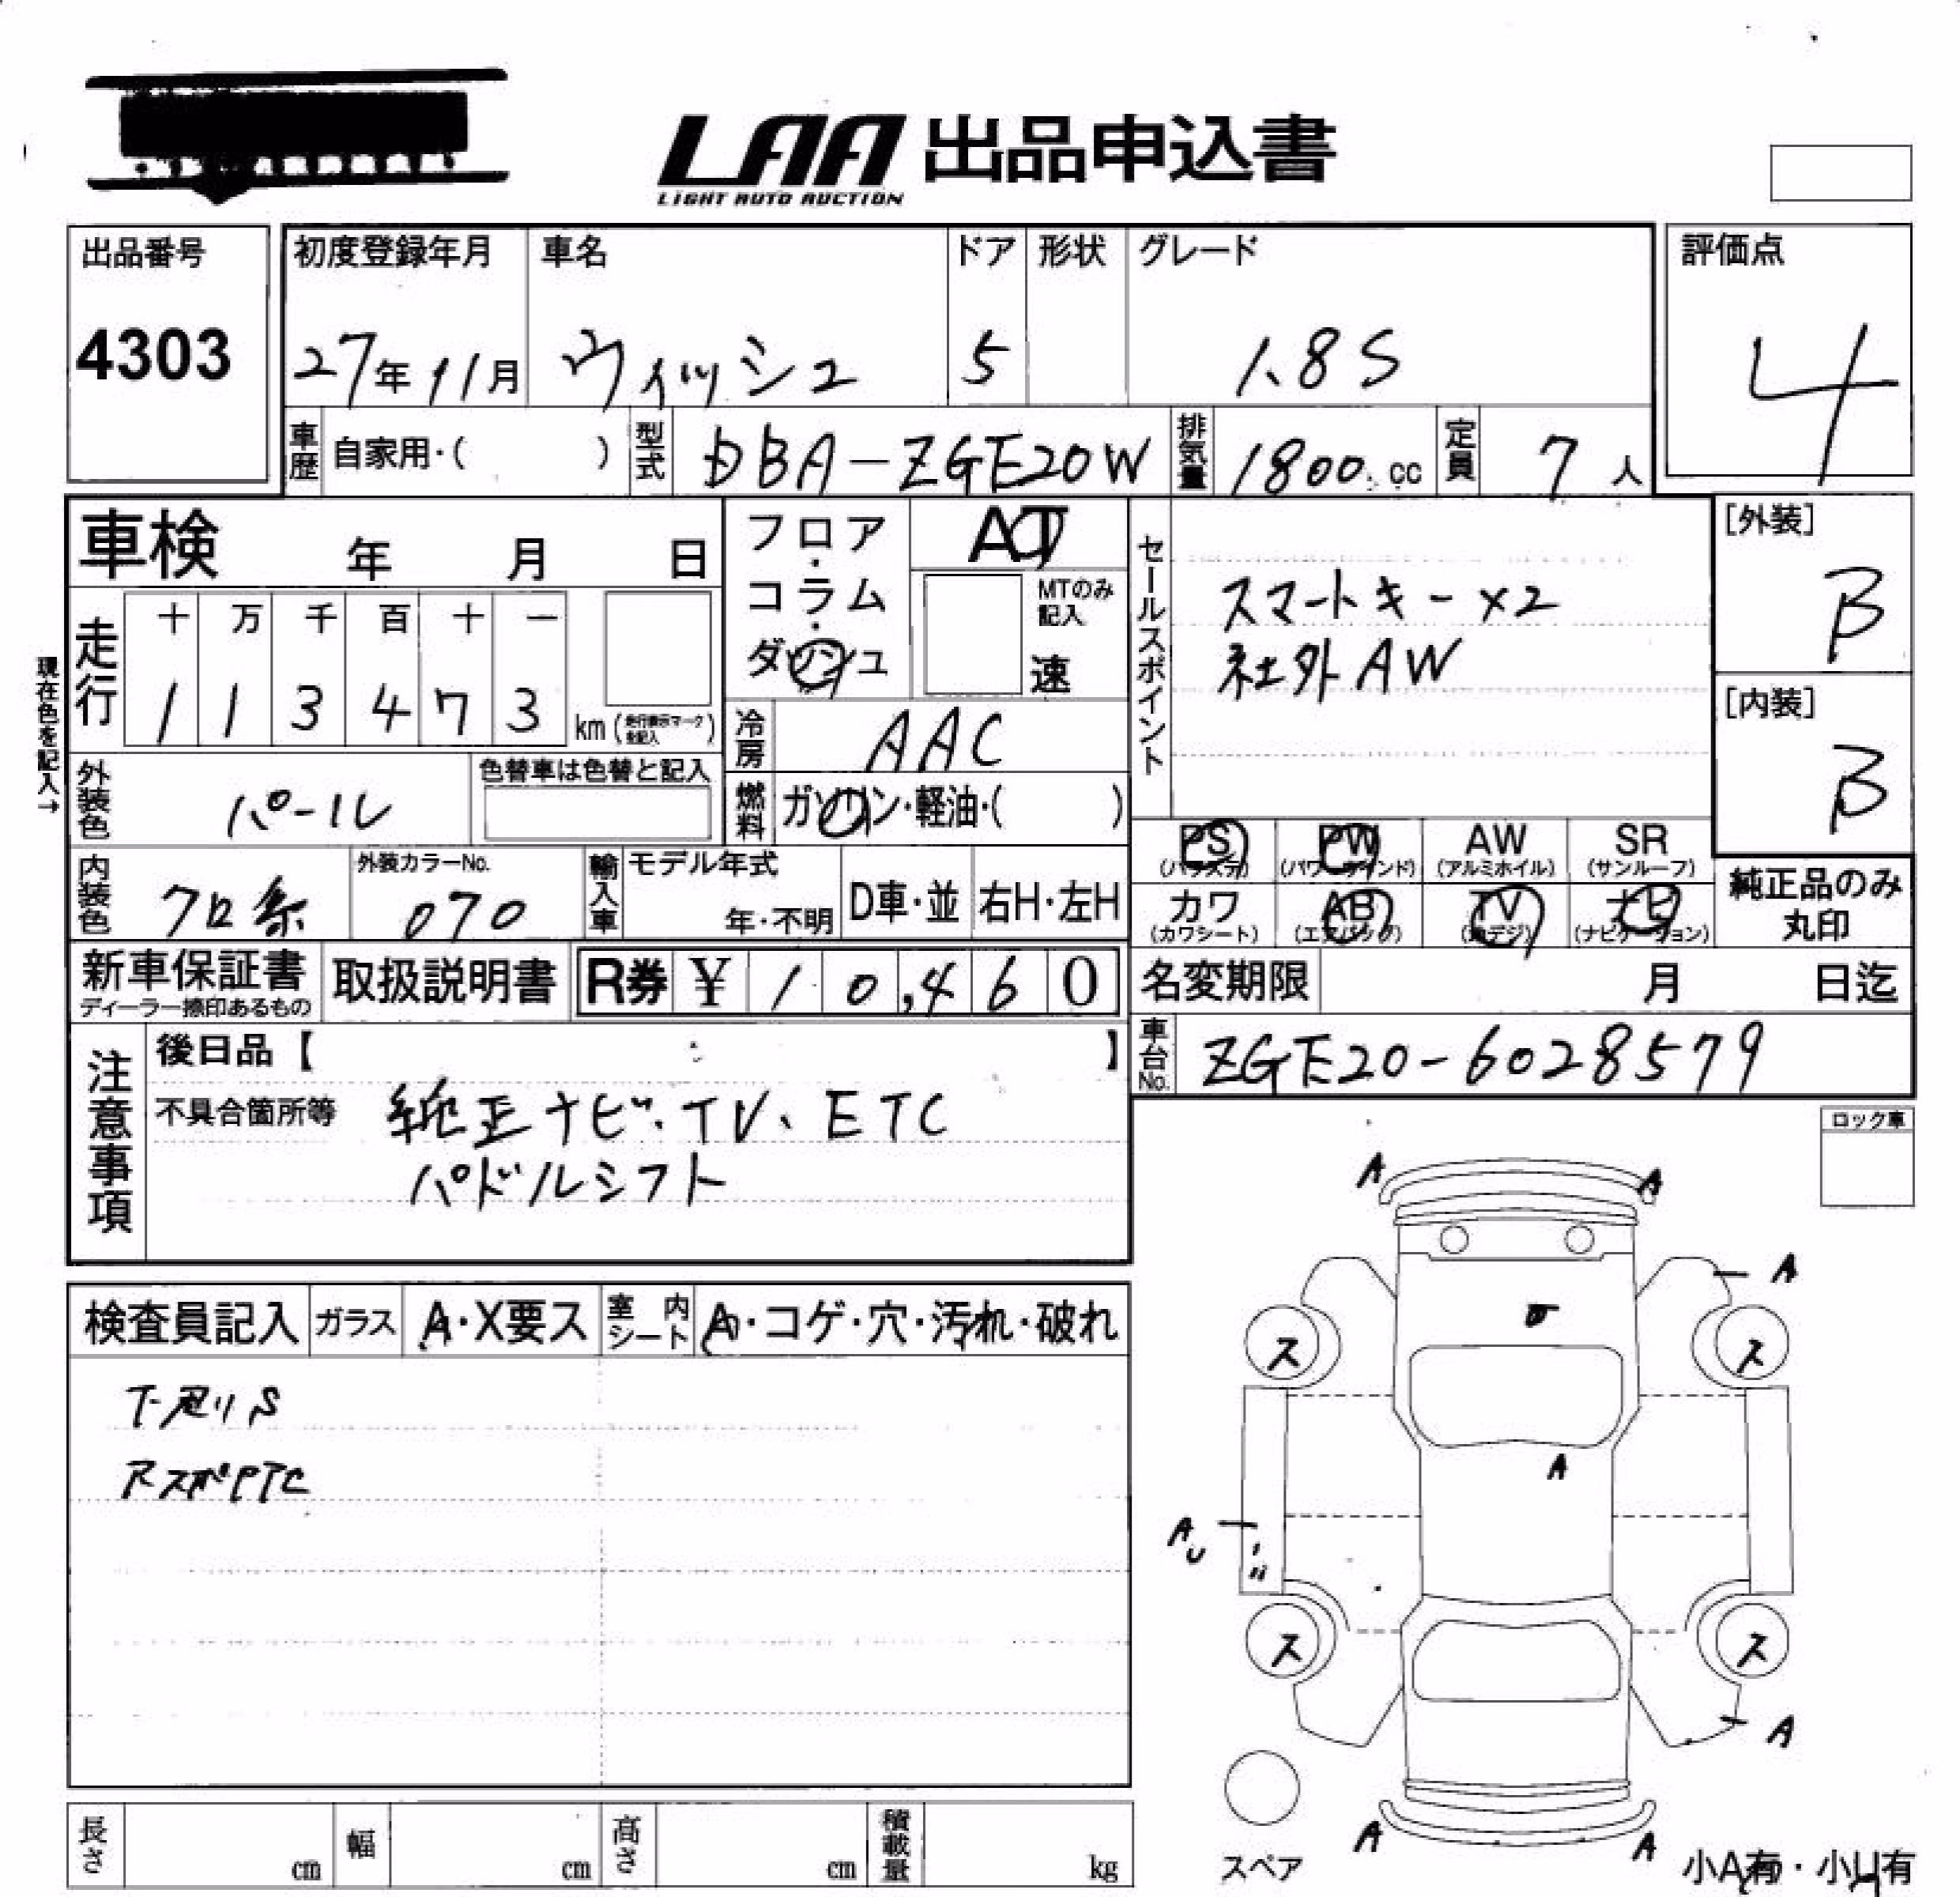 LAA 出品申込書
LIGHT AUTO AUCTION
出品番号
4303
初度登録年月
27年11月
車名
ウィッシュ
ドア
5
形状
グレード
1.8S
評価点
4
車歴
自家用・( )
型式
DBA-ZGE20W
排気量
1800 cc
定員
7人
車検 年 月 日
フロア・コラム・ダッシュ
AT
MTのみ記入
速
セールスポイント
スマートキー×2
社外AW
[外装]
B
[内装]
B
現在色を記入→
走行
十 万 千 百 十 一
1 1 3 4 7 3
km(走行表示マークを記入)
冷房
AAC
外装色
パール
色替車は色替と記入
燃料
ガソリン・軽油・( )
PS PW AW SR
(パワステ) (パワーウインド) (アルミホイル) (サンルーフ)
カワ AB TV ナビ
(カワシート) (エアバッグ) (地デジ) (ナビゲーション)
純正品のみ
丸印
内装色
クロ系
外装カラーNo.
070
輸入車
モデル年式
年・不明
D車・並
右H・左H
新車保証書
ディーラー捺印あるもの
取扱説明書
R券 ¥ 10,460
名変期限 月 日迄
車台No.
ZGE20-6028579
注意事項
後日品【 】
不具合箇所等
純正ナビ.TV、ETC
パドルシフト
ロック車
検査員記入
ガラス
A・X要ス
室内シート
A・コゲ・穴・汚れ・破れ
下廻りS
A A
A
ス ス
A
A U
ス ス
A
A A
スペア
小A有・小U有
長さ cm
幅 cm
高さ cm
積載量 kg